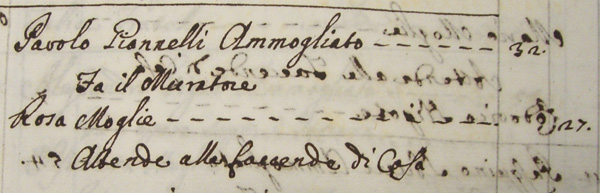 Pavolo Giannelli Ammogliato ------ 32.
Fa il Muratore
Rosa Moglie ---------- 27.
Attende alle faccende di Casa